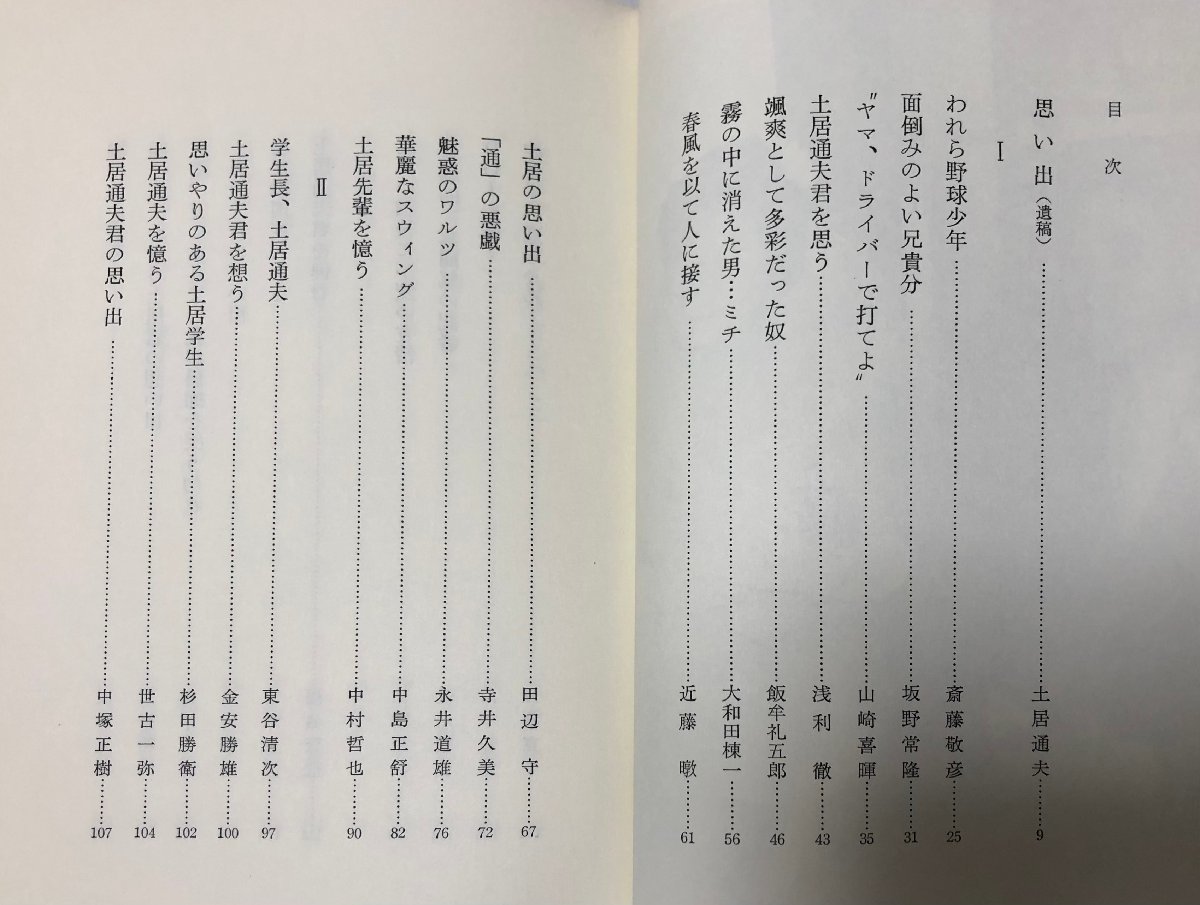 目次
思い出（遺稿）……土居通夫……9
Ⅰ
われら野球少年……斎藤敬彦……25
面倒みのよい兄貴分……坂野常隆……31
〝ヤマ、ドライバーで打てよ〟……山崎喜暉……35
土居通夫君を思う……浅利徹……43
颯爽として多彩だった奴……飯牟礼五郎……46
霧の中に消えた男…ミチ……大和田棟一……56
春風を以て人に接す……近藤暾……61
土居の思い出……田辺守……67
「通」の悪戯……寺井久美……72
魅惑のワルツ……永井道雄……76
華麗なスウィング……中島正舒……82
土居先輩を憶う……中村哲也……90
Ⅱ
学生長、土居通夫……東谷清次……97
土居通夫君を想う……金安勝雄……100
思いやりのある土居学生……杉田勝衛……102
土居通夫を憶う……世古一弥……104
土居通夫君の思い出……中塚正樹……107